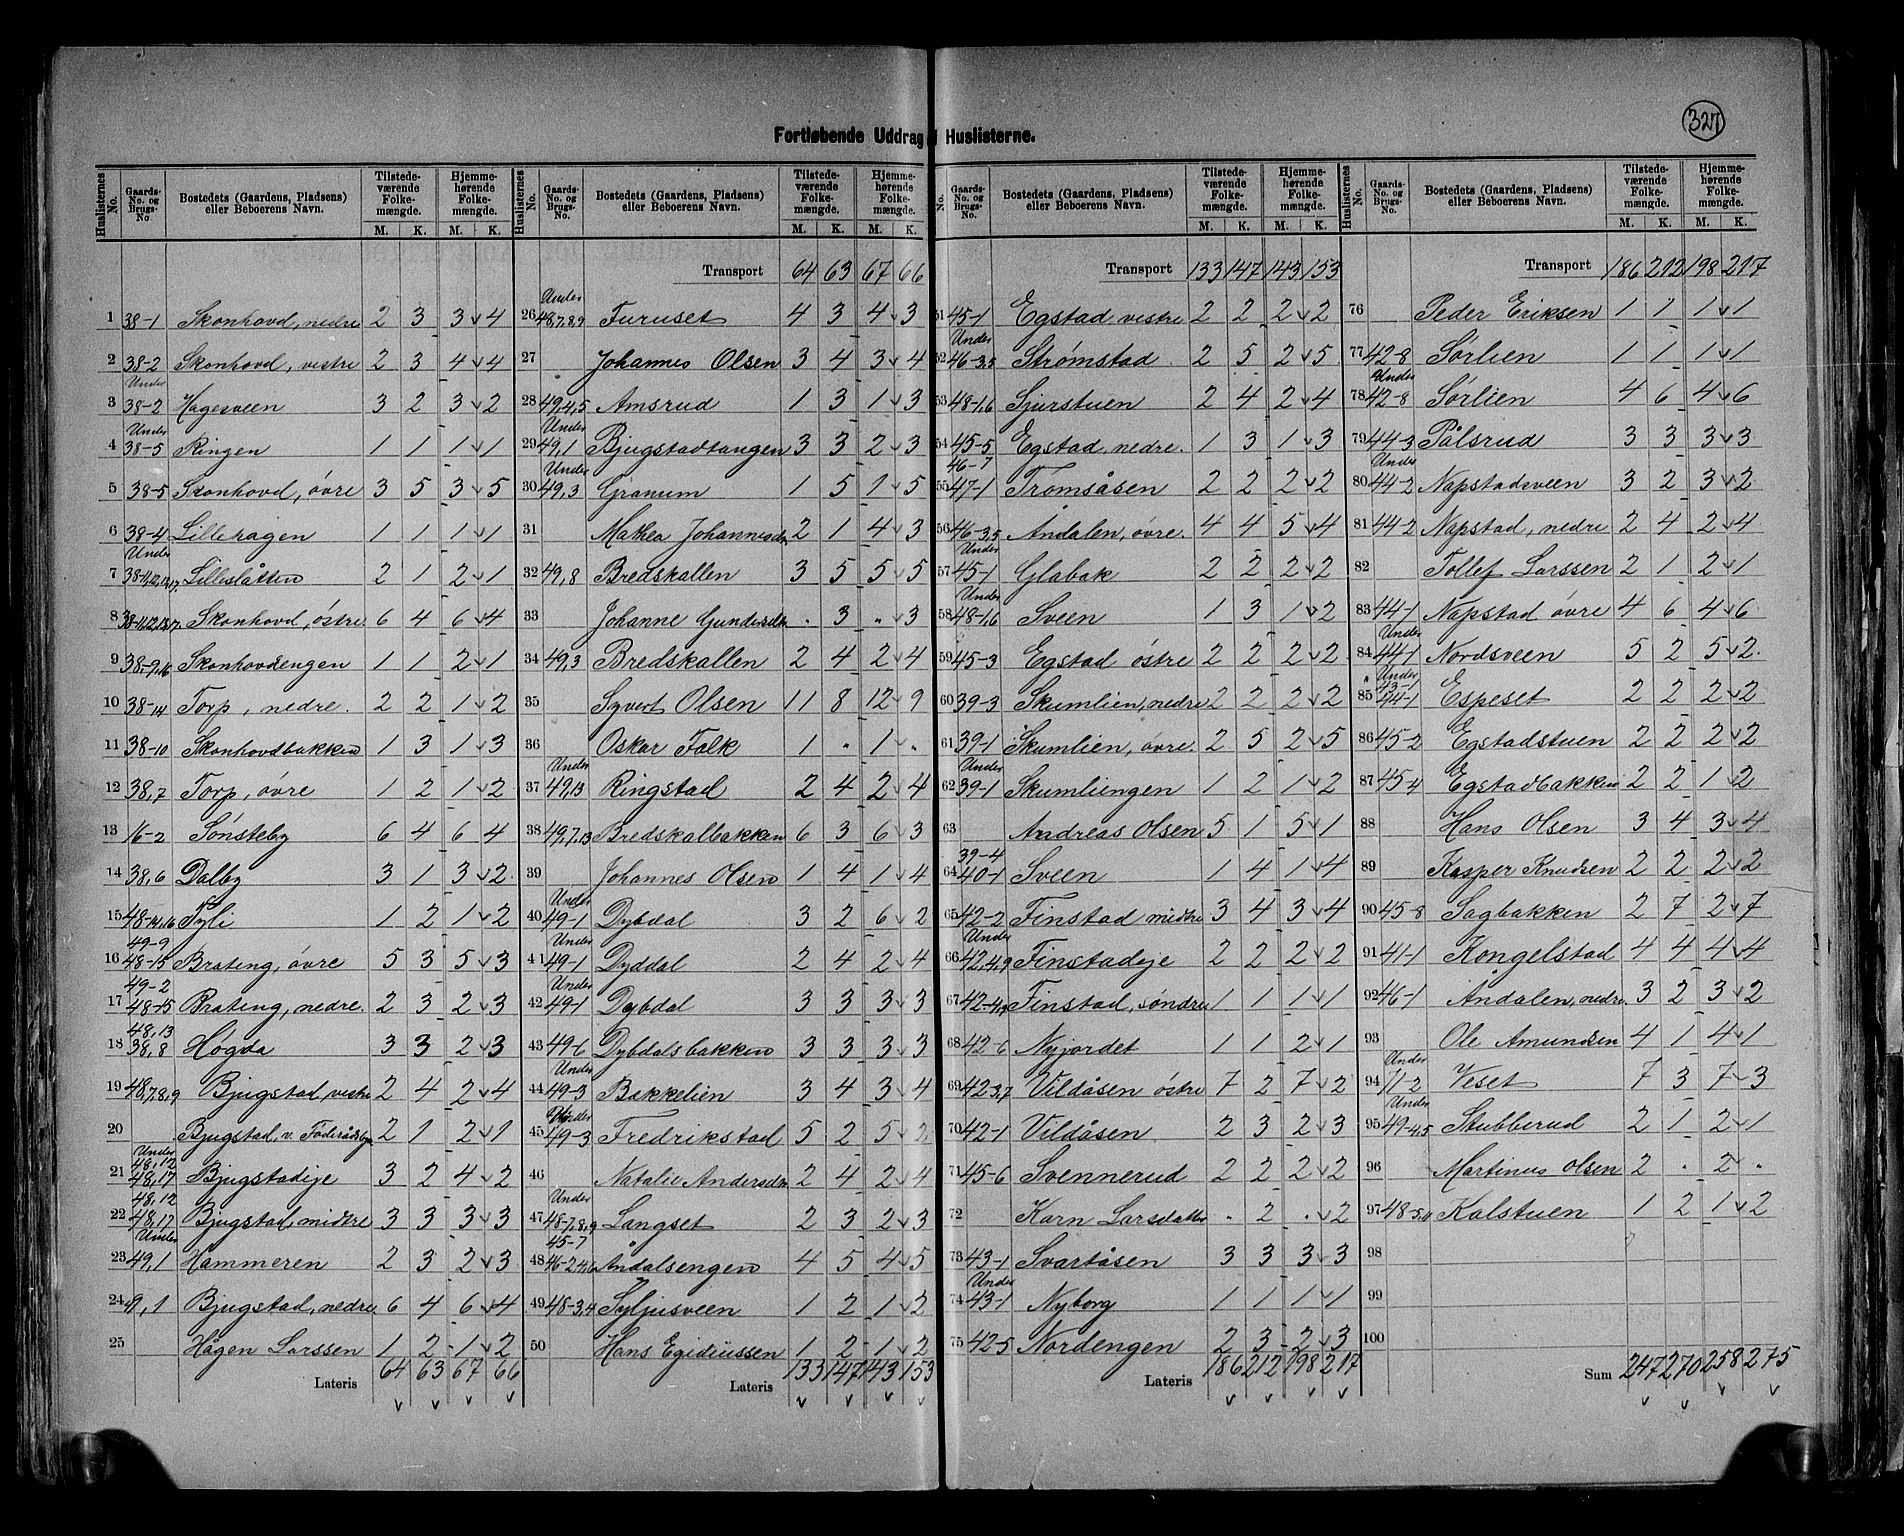 327
Fortløbende Uddrag Huslisterne.
Huslisternes No. Gaards-No. og Brugs-No. Bostedets (Gaardens, Pladsens) eller Beboerens Navn. Tilstedeværende Folkemængde. M. K. Hjemmehørende Folkemængde. M. K.
1 38-1 Skonhovd, nedre 2 3 3 4
2 38-2 Skonhovd, vestre 2 3 4 4
3 Under 38-2 Hagesveen 3 2 3 2
4 Under 38-5 Ringen 1 1 1 1
5 38-5 Skonhovd, øvre 3 5 3 5
6 38-4 Lillehagen 1 1 1 1
7 Under 38-11,12,13,17. Lilleslåtten 2 1 2 1
8 38-11,12,13,17. Skonhovd, östre 6 4 6 4
9 38,-9,16 Skonhovdsengen 1 1 2 1
10 38-14 Torp, nedre. 2 2 1 2
11 38-10 Skonhovdbakken 1 3 1 3
12 38,7 Torp, øvre 1 2 1 2
13 16-2 Sønsteby 6 4 6 4
14 38,6 Dalby 3 1 3 2
15 48-14,16 Tyli 1 2 1 2
16 49-9 48-15 Brateng, øvre 5 3 5 3
17 49-2 48-15 Brateng, nedre. 2 3 2 3
18 48,13 38,8 Høgda 3 3 2 3
19 48,7,8,9 Bjugstad, vestre 2 4 2 4
20 Bjugstad, v. Föderådsby 2 1 2 1
21 Under 48,12 48,17 Bjugstadeje 3 2 4 2
22 48,12 48,17 Bjugstad, midtre 3 3 3 3
23 Under 49,1 Hammeren 2 3 2 3
24 9,1 Bjugstad, nedre 6 4 6 4
25 Hågen Larssen 1 2 1 2
Lateris 64 63 67 66
Huslisternes No. Gaards-No. og Brugs-No. Bostedets (Gaardens, Pladsens) eller Beboerens Navn. Tilstedeværende Folkemængde. M. K. Hjemmehørende Folkemængde. M. K.
Transport 64 63 67 66
26 Under 48,7,8,9 Furuset 4 3 4 3
27 Johannes Olsen 3 4 3 4
28 49,4,5 Amsrud 1 3 1 3
29 Under 49,1 Bjugstadtangen 3 3 2 3
30 Under 49,3 Granum 1 5 1 5
31 Mathea Johannesdn 2 1 4 3
32 49,8 Bredskallen 3 5 5 5
33 Johanne Gundersdtn . 3 . 3
34 49,3 Bredskallen 2 4 2 4
35 Syvert Olsen 11 8 12 9
36 Oskar Falk 1 . 1 .
37 Under 49,13 Ringstad 2 4 2 4
38 49,7,13 Bredskalbakken 6 3 6 3
39 Johannes Olsen 1 4 1 4
40 Under 49-1 Dybdal 3 2 6 2
41 Under 49-1 Dyddal 2 4 2 4
42 Under 49-1 Dybdal 3 3 3 3
43 49-6 Dybdalsbakken 3 3 3 3
44 Under 49-3 Bakkelien 3 4 3 4
45 Under 49-3 Fredrikstad 5 2 5 2
46 Natalie Andersdn 2 4 2 4
47 Under 48-7,8,9 Langset 2 3 2 3
48 45-7 46-2,4,6 Åndalsengen 4 5 4 5
49 48-3,4 Syljusveen 1 2 1 2
50 Hans Egidiussen 1 2 1 2
Lateris 133 147 143 153
Gaards-No. og Brugs-No. Bostedets (Gaardens, Pladsens) eller Beboerens Navn. Tilstedeværende Folkemængde. M. K. Hjemmehørende Folkemængde. M. K.
Transport 133 147 143 153
51 45-1 Egstad vestre 2 2 2 2
52 Under 46-3,5 Strømstad 2 5 2 5
53 48-1,6 Sjurstuen 2 4 2 4
54 45-5 Egstad, nedre. 1 3 1 3
55 46-7 47-1 Tromsåsen 2 2 2 2
56 46-3,5 Åndalen, øvre. 4 4 5 4
57 Under 45-1 Glabak 2 2 2 2
58 Under 48-1,6 Sveen 1 3 1 2
59 45-3 Egstad östre 2 2 2 2
60 39-3 Skumlien, nedre 2 2 2 2
61 39-1 Skumlien, øvre. 2 5 2 5
62 Under 39-1 Skumliengen 1 2 1 2
63 Andreas Olsen 5 1 5 1
64 39-4 40-1 Sveen 1 4 1 4
65 42-2 Finstad midtre 3 4 3 4
66 Under 42,4,9 Finstadeje 2 2 2 2
67 42-4,9 Finstad, söndre 1 1 1 1
68 42-6 Nyjordet 1 1 2 1
69 42-3,7 Vildåsen østre 7 2 7 2
70 42-1 Vildåsen 2 3 2 3
71 45-6 Svennerud 2 2 2 2
72 Karn Larsdatter . 2 . 2
73 43-1 Svartåsen 3 3 3 3
74 Under 43-1 Nyborg 1 1 1 1
75 42-5 Nordengen 2 3 2 3
Lateris 186 212 198 217
Huslisternes No. Gaards-No. og Brugs-No. Bostedets (Gaardens, Pladsens) eller Beboerens Navn. Tilstedeværende Folkemængde. M. K. Hjemmehørende Folkemængde. M. K.
Transport 186 212 198 217
76 Peder Eriksen 1 1 1 1
77 42-8 Sørlien 1 1 1 1
78 Under 42-8 Sørlien 4 6 4 6
79 44-3 Pålsrud 3 3 3 3
80 Under 44-2 Napstadsveen 3 2 3 2
81 44-2 Napstad, nedre 2 4 2 4
82 Tollef Larssen 2 1 2 1
83 44-1 Napstad øvre 4 6 4 6
84 Under 44-1 Nordsveen 5 2 5 2
85 Under 43-1 44-1 Espeset 2 2 2 2
86 45-2 Egstadstuen 2 2 2 2
87 45-4 Egstadbakken 2 2 1 2
88 Hans Olsen 3 4 3 4
89 Kasper Knudsen 2 2 2 2
90 45-8 Sagbakken 2 7 2 7
91 41-1 Kongelstad 4 4 4 4
92 46-1 Åndalen, nedre. 3 2 3 2
93 Ole Amundsen 4 1 4 1
94 Under 71-2 Veset 7 3 7 3
95 Under 49-4,5 Stubberud 2 1 2 1
96 Martinus Olsen 2 . 2 .
97 48-5,11 Kalstuen 1 2 1 2
98
99
100
Sum 247 270 258 275